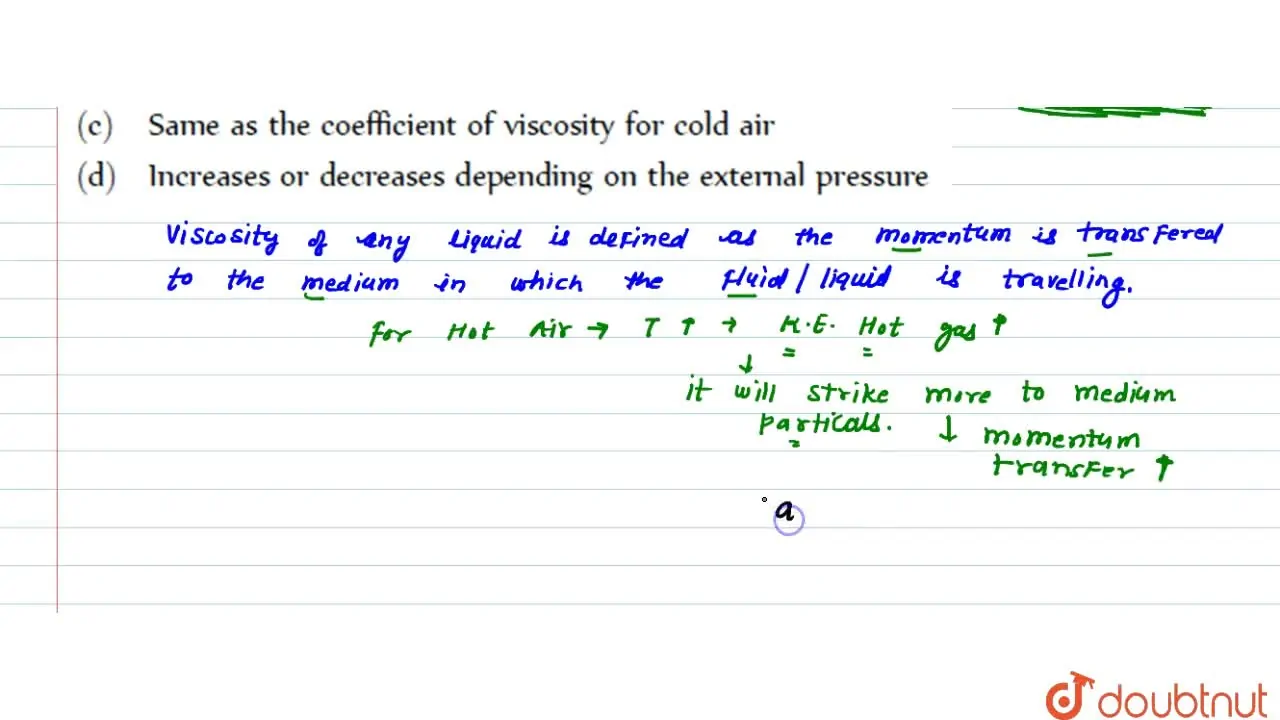 (c) Same as the coefficient of viscosity for cold air
(d) Increases or decreases depending on the external pressure
Viscosity of any liquid is defined as the momentum is transfered
to the medium in which the fluid/liquid is travelling.
for Hot Air → T ↑ → K.E. Hot gas ↑
↓
it will strike more to medium
particals. ↓ momentum
transfer ↑
a
doubtnut